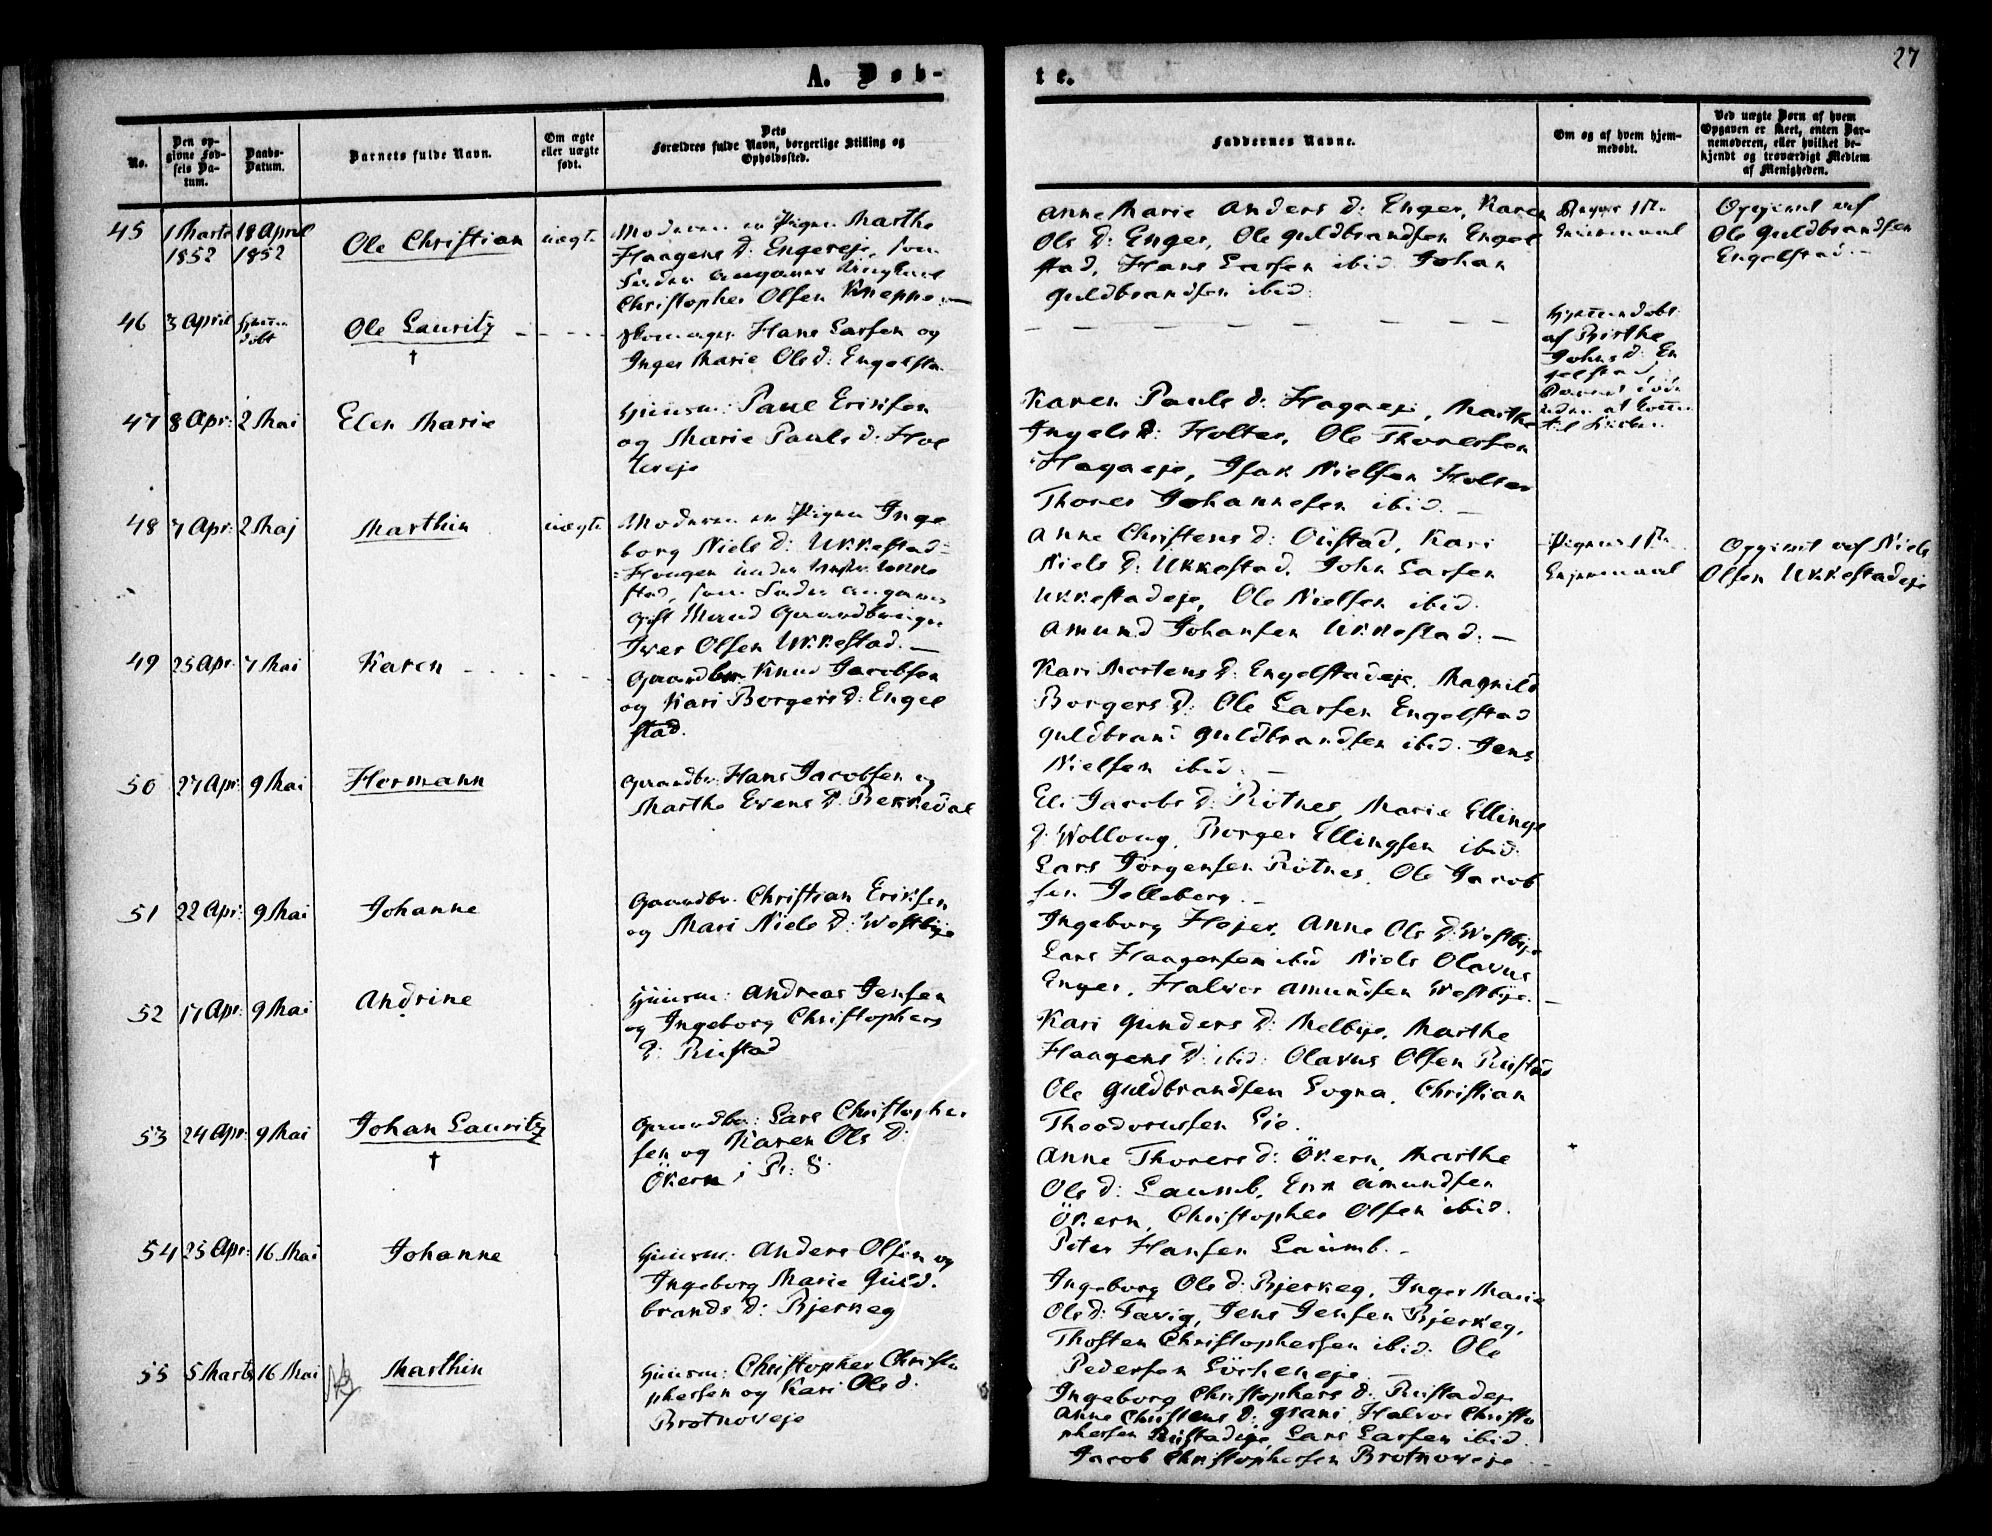 27
A. Døb-
te.
No.
Den op-
givne Fød-
sels Da-
tum.
Daabs-
Datum.
Barnets fulde Navn.
Om ægte
eller uægte
født.
Dets
Forældres fulde Navn, borgerlige Stilling og
Opholdssted.
Faddernes Navne.
Om og af hvem hjem-
medøbt.
Ved uægte Børn af hvem
Opgaven er skeet, enten Bar-
nemoderen, eller hvilket be-
kjendt og troværdigt Medlem
af Menigheden.
45
1 Marts
1852
18 April
1852
Ole Christian
uægte
Moderen en Pigen Marthe
Haagens D: Engereje, som
Fader angaves Ungkarl
Christopher Olsen Kneppe. —
Anne Marie Anders D: Enger, Karen
Ols D: Enger, Ole Guldbrandsen Engel
stad, Hans Larsen ibid. Johan
Guldbrandsen ibid.
Begges 1ste
Leiermaal
Opgivet af
Ole Guldbrandsen
Engelstad. —
46
3 April
Hjemme
døbt
Ole Lauritz
†
Skomager Hans Larsen og
Inger Marie Ols D: Engelsta
Hjemmedøbt
af Birthe
Johns D: En
gelstad,
47
8 Apr:
2 Mai
Elen Marie
Huusm: Paul Eriksen
og Marie Pauls D: Hol
tereje
Karen Pauls D: Hagaeje, Marthe
Ingels D: Holter, Ole Thoresen
Hagaeje, Isak Nielsen Holter
Thorer Johannesen ibid. —
48
7 Apr:
2 Maj
Marthin
uægte
Moderen en Pigen Inge
borg Niels D: Ukkestad-
Haugen under Ukke
stad, som Fader angaves
gift Mand Gaardbruger
Iver Olsen Ukkestad. —
Anne Christens D: Oustad, Kari
Niels D: Ukkestad, John Larsen
Ukkestadeje, Ole Nielsen ibid.
Amund Johansen Ukkestad. —
Pigens 1ste
Leiermaal
Opgivet af Niels
Olsen Ukkestadeje
49
25 Apr:
7 Mai
Karen
Gaardbr. Knud Jacobsen
og Kari Borgers D: Engel
stad.
Kari Mortens D: Engelstadeje, Magnild
Borgers D: Ole Larsen Engelstad
Guldbrand Guldbrandsen ibid. Jens
Nielsen ibid. —
50
27 Apr:
9 Mai
Hermann
Gaardbr. Hans Jacobsen og
Marthe Evens D. Bekkedal
Eli Jacobs D: Rotnes, Marie Ellings
D: Wollaug, Borger Ellingsen ibid.
Lars Jörgensen Rotnes, Ole Jacob
sen Jelleberg. —
51
22 Apr:
9 Mai
Johanne
Gaardbr. Christian Eriksen
og Mari Niels D: Westbye
Ingeborg Hejer, Anne Ols D: Westbye
Lars Haagensen ibid Niels Olavus
Enger, Halvor Amundsen Westbye. —
52
17 Apr:
9 Mai
Andrine
Huusm: Andreas Jensen
og Ingeborg Christophers
D: Rustad
Kari Gunders D: Melbye, Marthe
Haagens D: ibid: Olavus Olsen Rustad
Ole Guldbrandsen Sogna, Christian
Theodorussen Lie.
53
24 Apr:
9 Mai
Johan Lauritz
†
Gaardbr: Lars Christopher
sen og Karen Ols D:
Ökern i Pr: 8.
Anne Thorers D: Ökern, Marthe
Ols D: Laumb, Erik Amundsen
Ökern, Christopher Olsen ibid.
Peter Hansen Laumb. —
54
25 Apr:
16 Mai
Johanne
Huusm: Anders Olsen og
Ingeborg Marie Guld.
brands D: Bjerkeg
Ingeborg Ols D: Bjerkeg, Inger Marie
Ols D: Tavig, Jens Jensen Bjerkeg,
Thosten Christophersen ibid. Ole
Pedersen
55
5 Marts
16 Mai
NB
Marthin
Huusm: Christopher Christo
phersen og Kari Ols D.
Brotnoveje
Ingeborg Christophers D: Rustadeje
Anne Christens D: Grani, Halvor Christo
phersen Rustadeje, Lars Larsen ibid.
Jacob Christophersen Brotnoveje